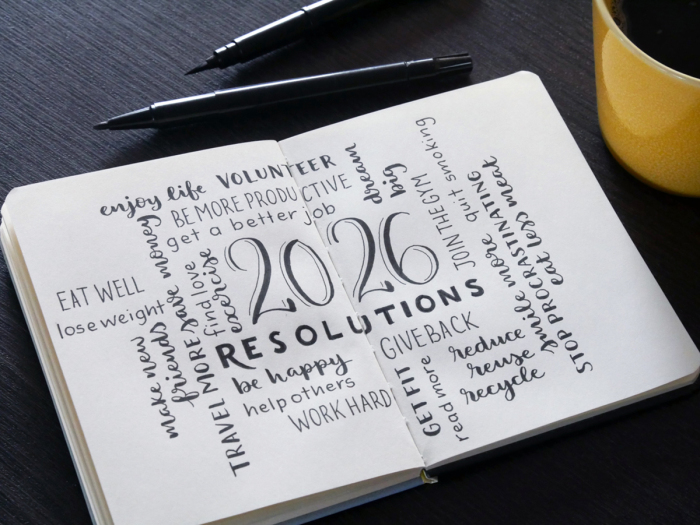 enjoy life
VOLUNTEER
BE MORE PRODUCTIVE
get a better job
dream
big
quit smoking
JOIN THE GYM
EAT WELL
lose weight
save money
find love
exercise
2026
RESOLUTIONS
make new
friends
TRAVEL MORE
be happy
help others
WORK HARD
GIVE BACK
GET FIT
read more
reduce
reuse
recycle
smile more
STOP PROCRASTINATING
eat less meat